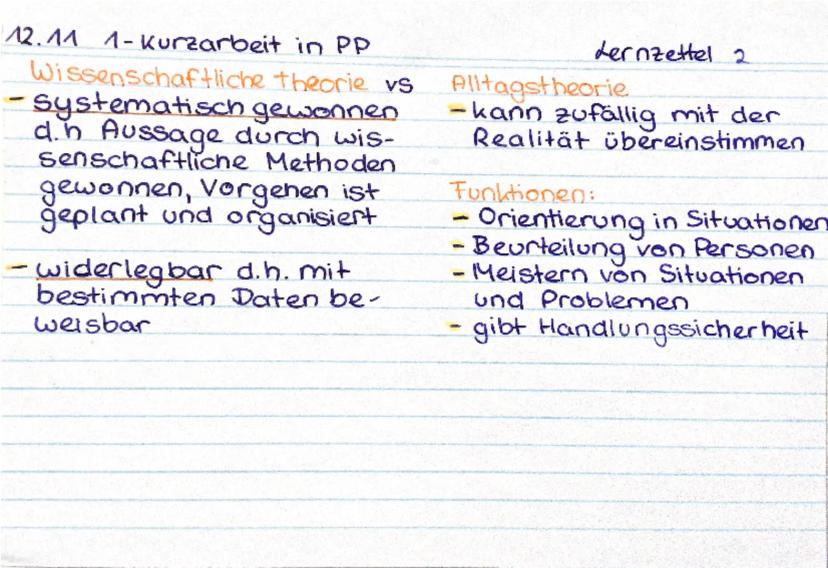 12.11 1-Kurzarbeit in PP
Lernzettel 2
Wissenschaftliche theorie vs
- systematisch gewonnen
d.h Aussage durch wis-
senschaftliche Methoden
gewonnen, Vorgehen ist
geplant und organisiert
- widerlegbar d.h. mit
bestimmten Daten be-
weisbar
Alltagstheorie
- kann zufällig mit der
Realität übereinstimmen
Funktionen:
- Orientierung in Situationen
- Beurteilung von Personen
- Meistern von Situationen
und Problemen
- gibt Handlungssicherheit